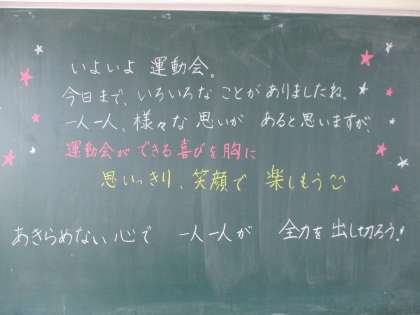 いよいよ 運動会。
今日まで、いろいろな ことが ありましたね。
一人一人、様々な 思いが あると思いますが、
運動会が できる喜びを胸に
思いっきり、笑顔で 楽しもう
あきらめない心で 一人一人が 全力を出し切ろう!